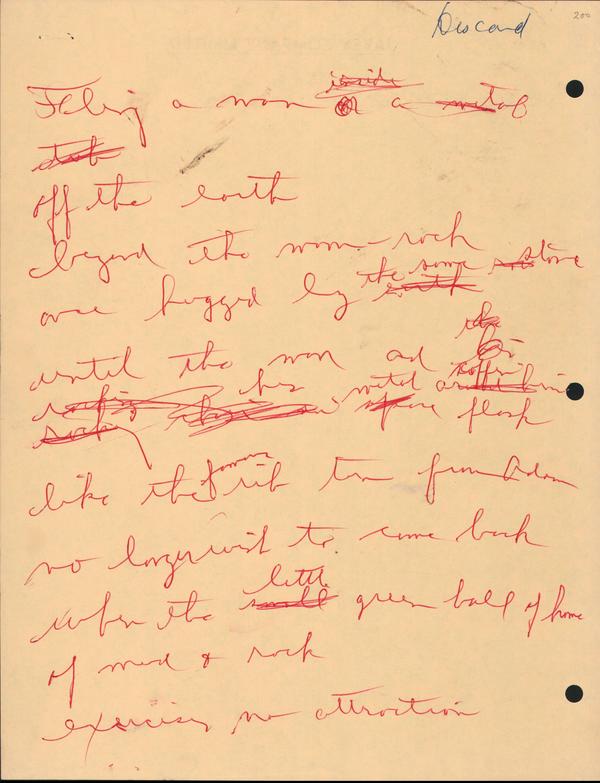 Discard
200
Felling a man inside a metal
off the earth
beyond the moon-rock
once hugged by the same stone
until the man and his coffin
his metal
spare flesh
like the famous rib torn from Adam
no longer wish to come back
when the little small green ball of home
of mud & rock
exercises no attraction